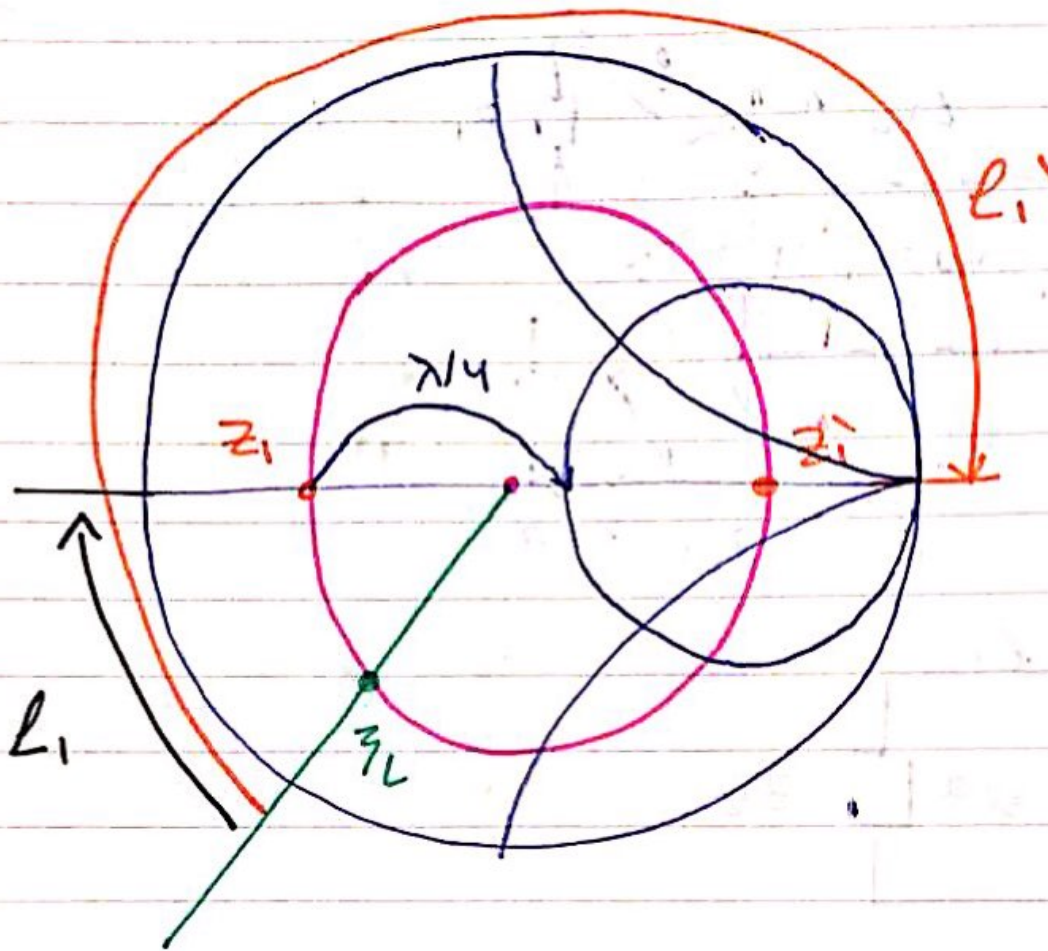 l₁`
λ/4
z₁
z₁`
l₁
z_L